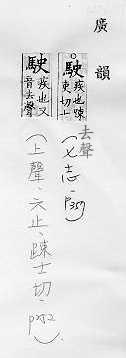 廣韻
。駛疾也踈
吏切士
去聲
(七志,p357)
駛疾也又
音去聲
(上聲、六止、踈士切、p252)